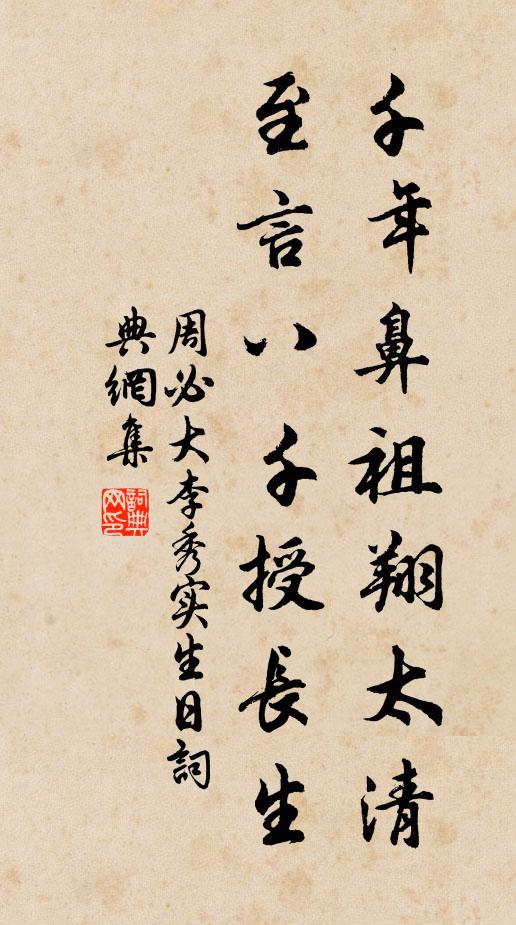 千年鼻祖翔太清
至言八千授長生
周必大李秀实生日詞
典網集
詞典網印